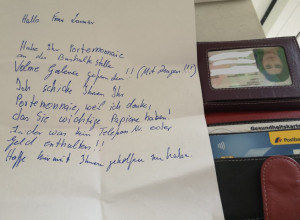 Hallo Frau
Habe Ihr Portemonnaie
an der Bushaltestelle
gefunden!! (Mit Zeugen!!)
Ich schicke Ihnen Ihr
Portemonnaie, weil ich denke,
das Sie wichtige Papiere haben!
Leider war kein Telefon Nr. oder
Geld enthalten!!
Hoffe hiermit Ihnen geholfen zu haben.
Gesundheitskarte